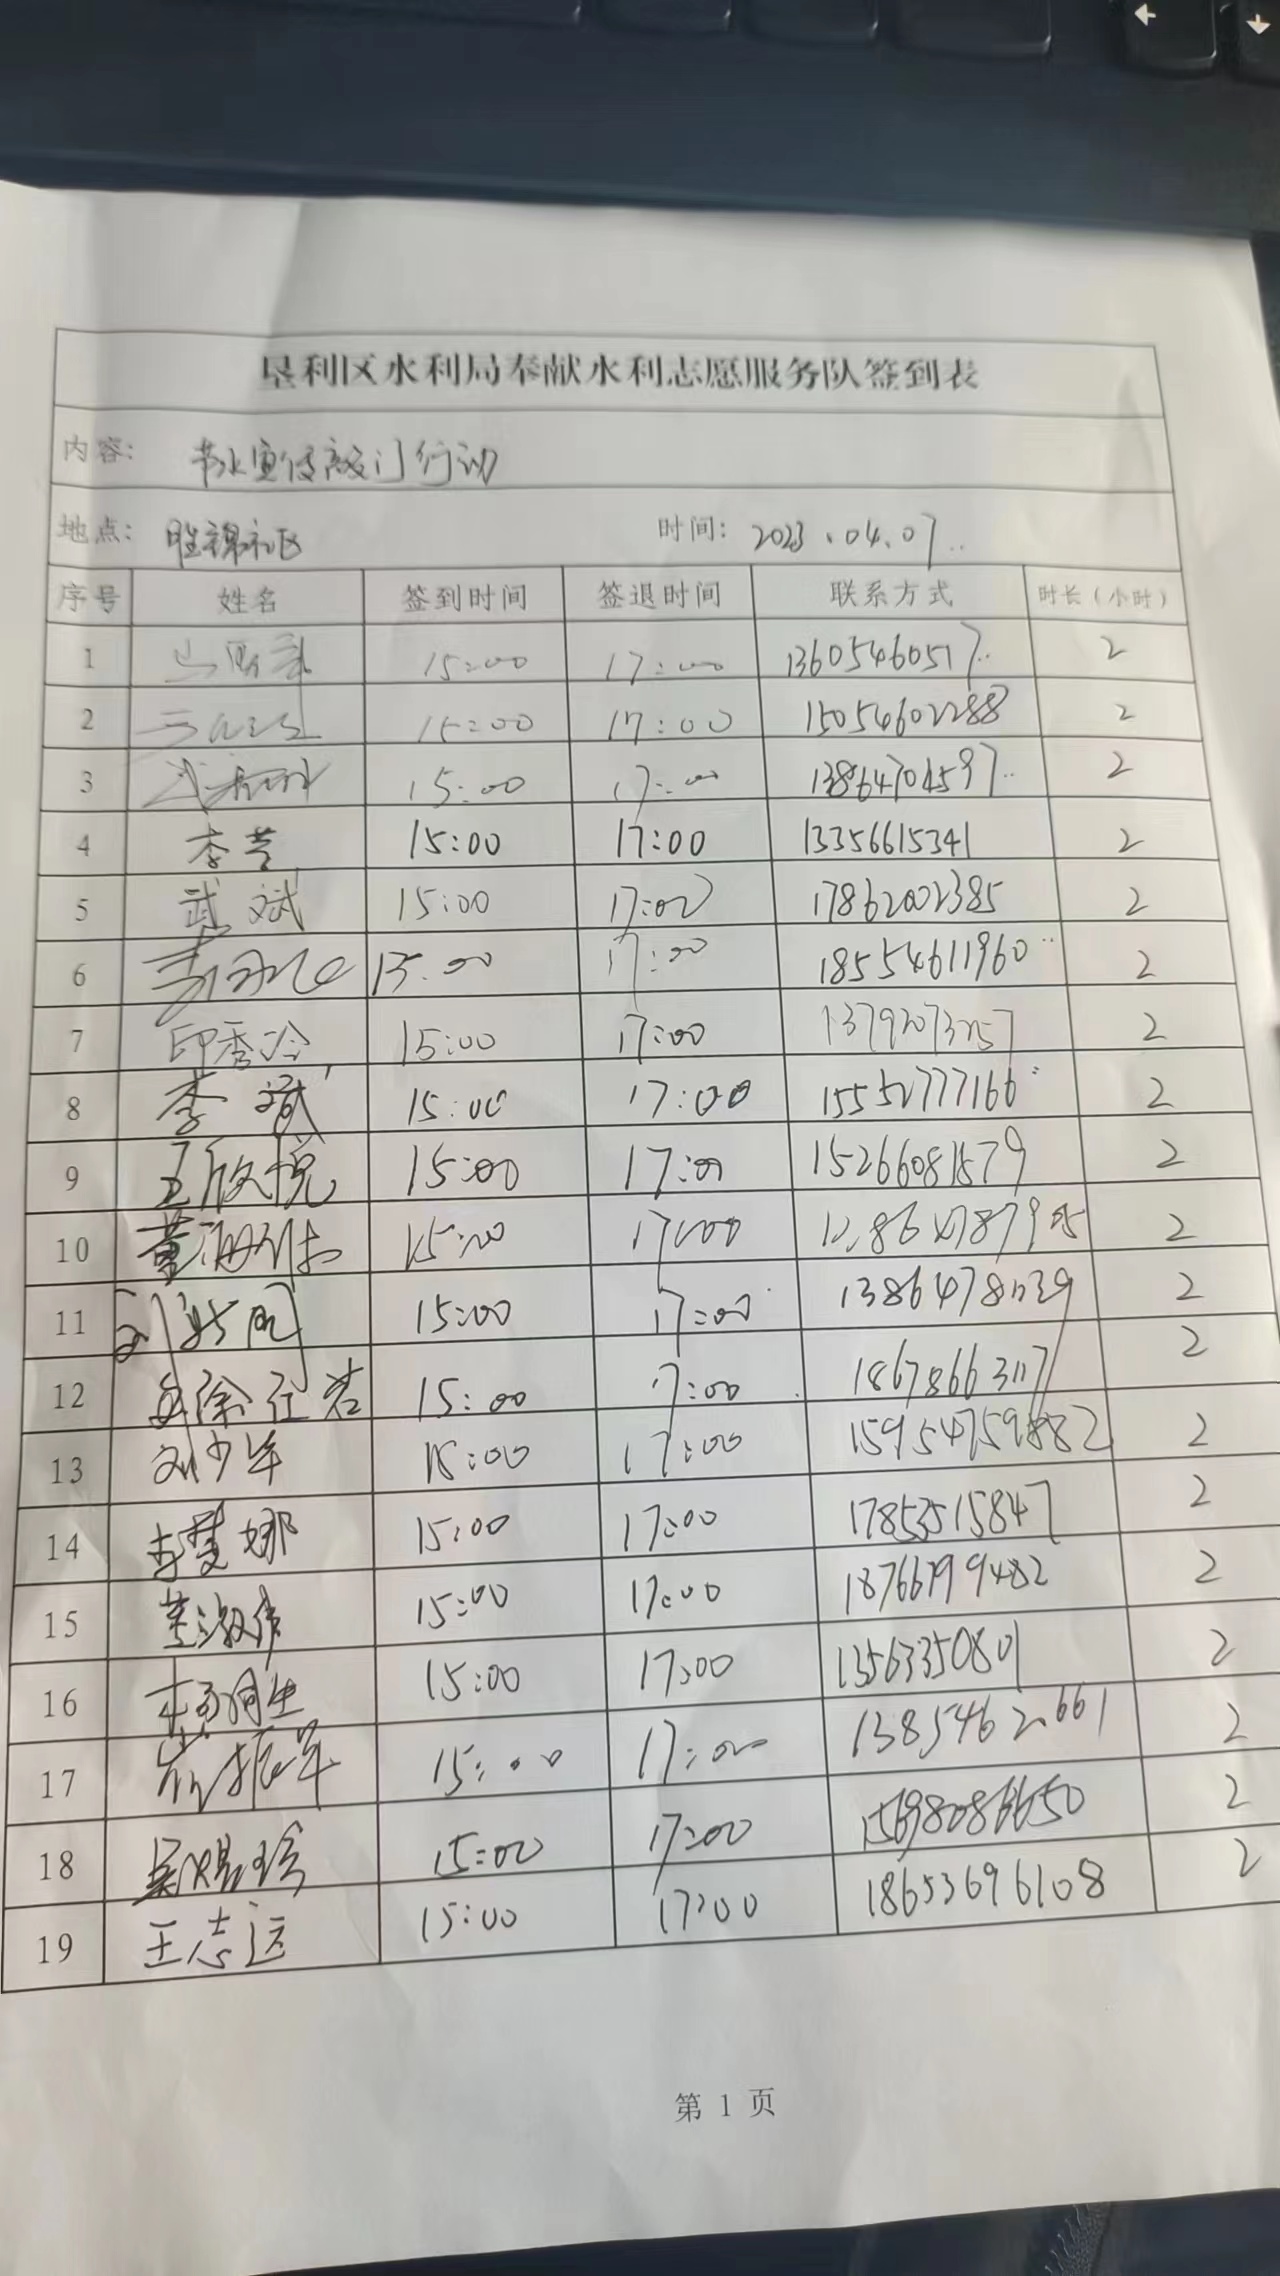 垦利区水利局奉献水利志愿服务队签到表
内容: 节水宣传敲门行动
地点: 胜锦社区 时间: 2023.04.07
序号 姓名 签到时间 签退时间 联系方式 时长(小时)
1 15:00 17:00 13605460517 2
2 15:00 17:00 15054602288 2
3 15:00 17:00 13864704597 2
4 李芸 15:00 17:00 13356615341 2
5 武斌 15:00 17:00 17862002385 2
6 15:00 17:00 18554611960 2
7 印秀玲 15:00 17:00 13792073257 2
8 李斌 15:00 17:00 15552777166 2
9 王欣悦 15:00 17:00 15266081579 2
10 15:00 17:00 2
11 15:00 17:00 2
12 15:00 17:00 18678663117 2
13 刘少华 15:00 17:00 2
14 李慧娜 15:00 17:00 17853515847 2
15 15:00 17:00 18766799482 2
16 杨同生 15:00 17:00 13563350801 2
17 崔振军 15:00 17:00 1385462661 2
18 15:00 17:00 15698086650 2
19 王志远 15:00 17:00 18653696108 2
第 1 页